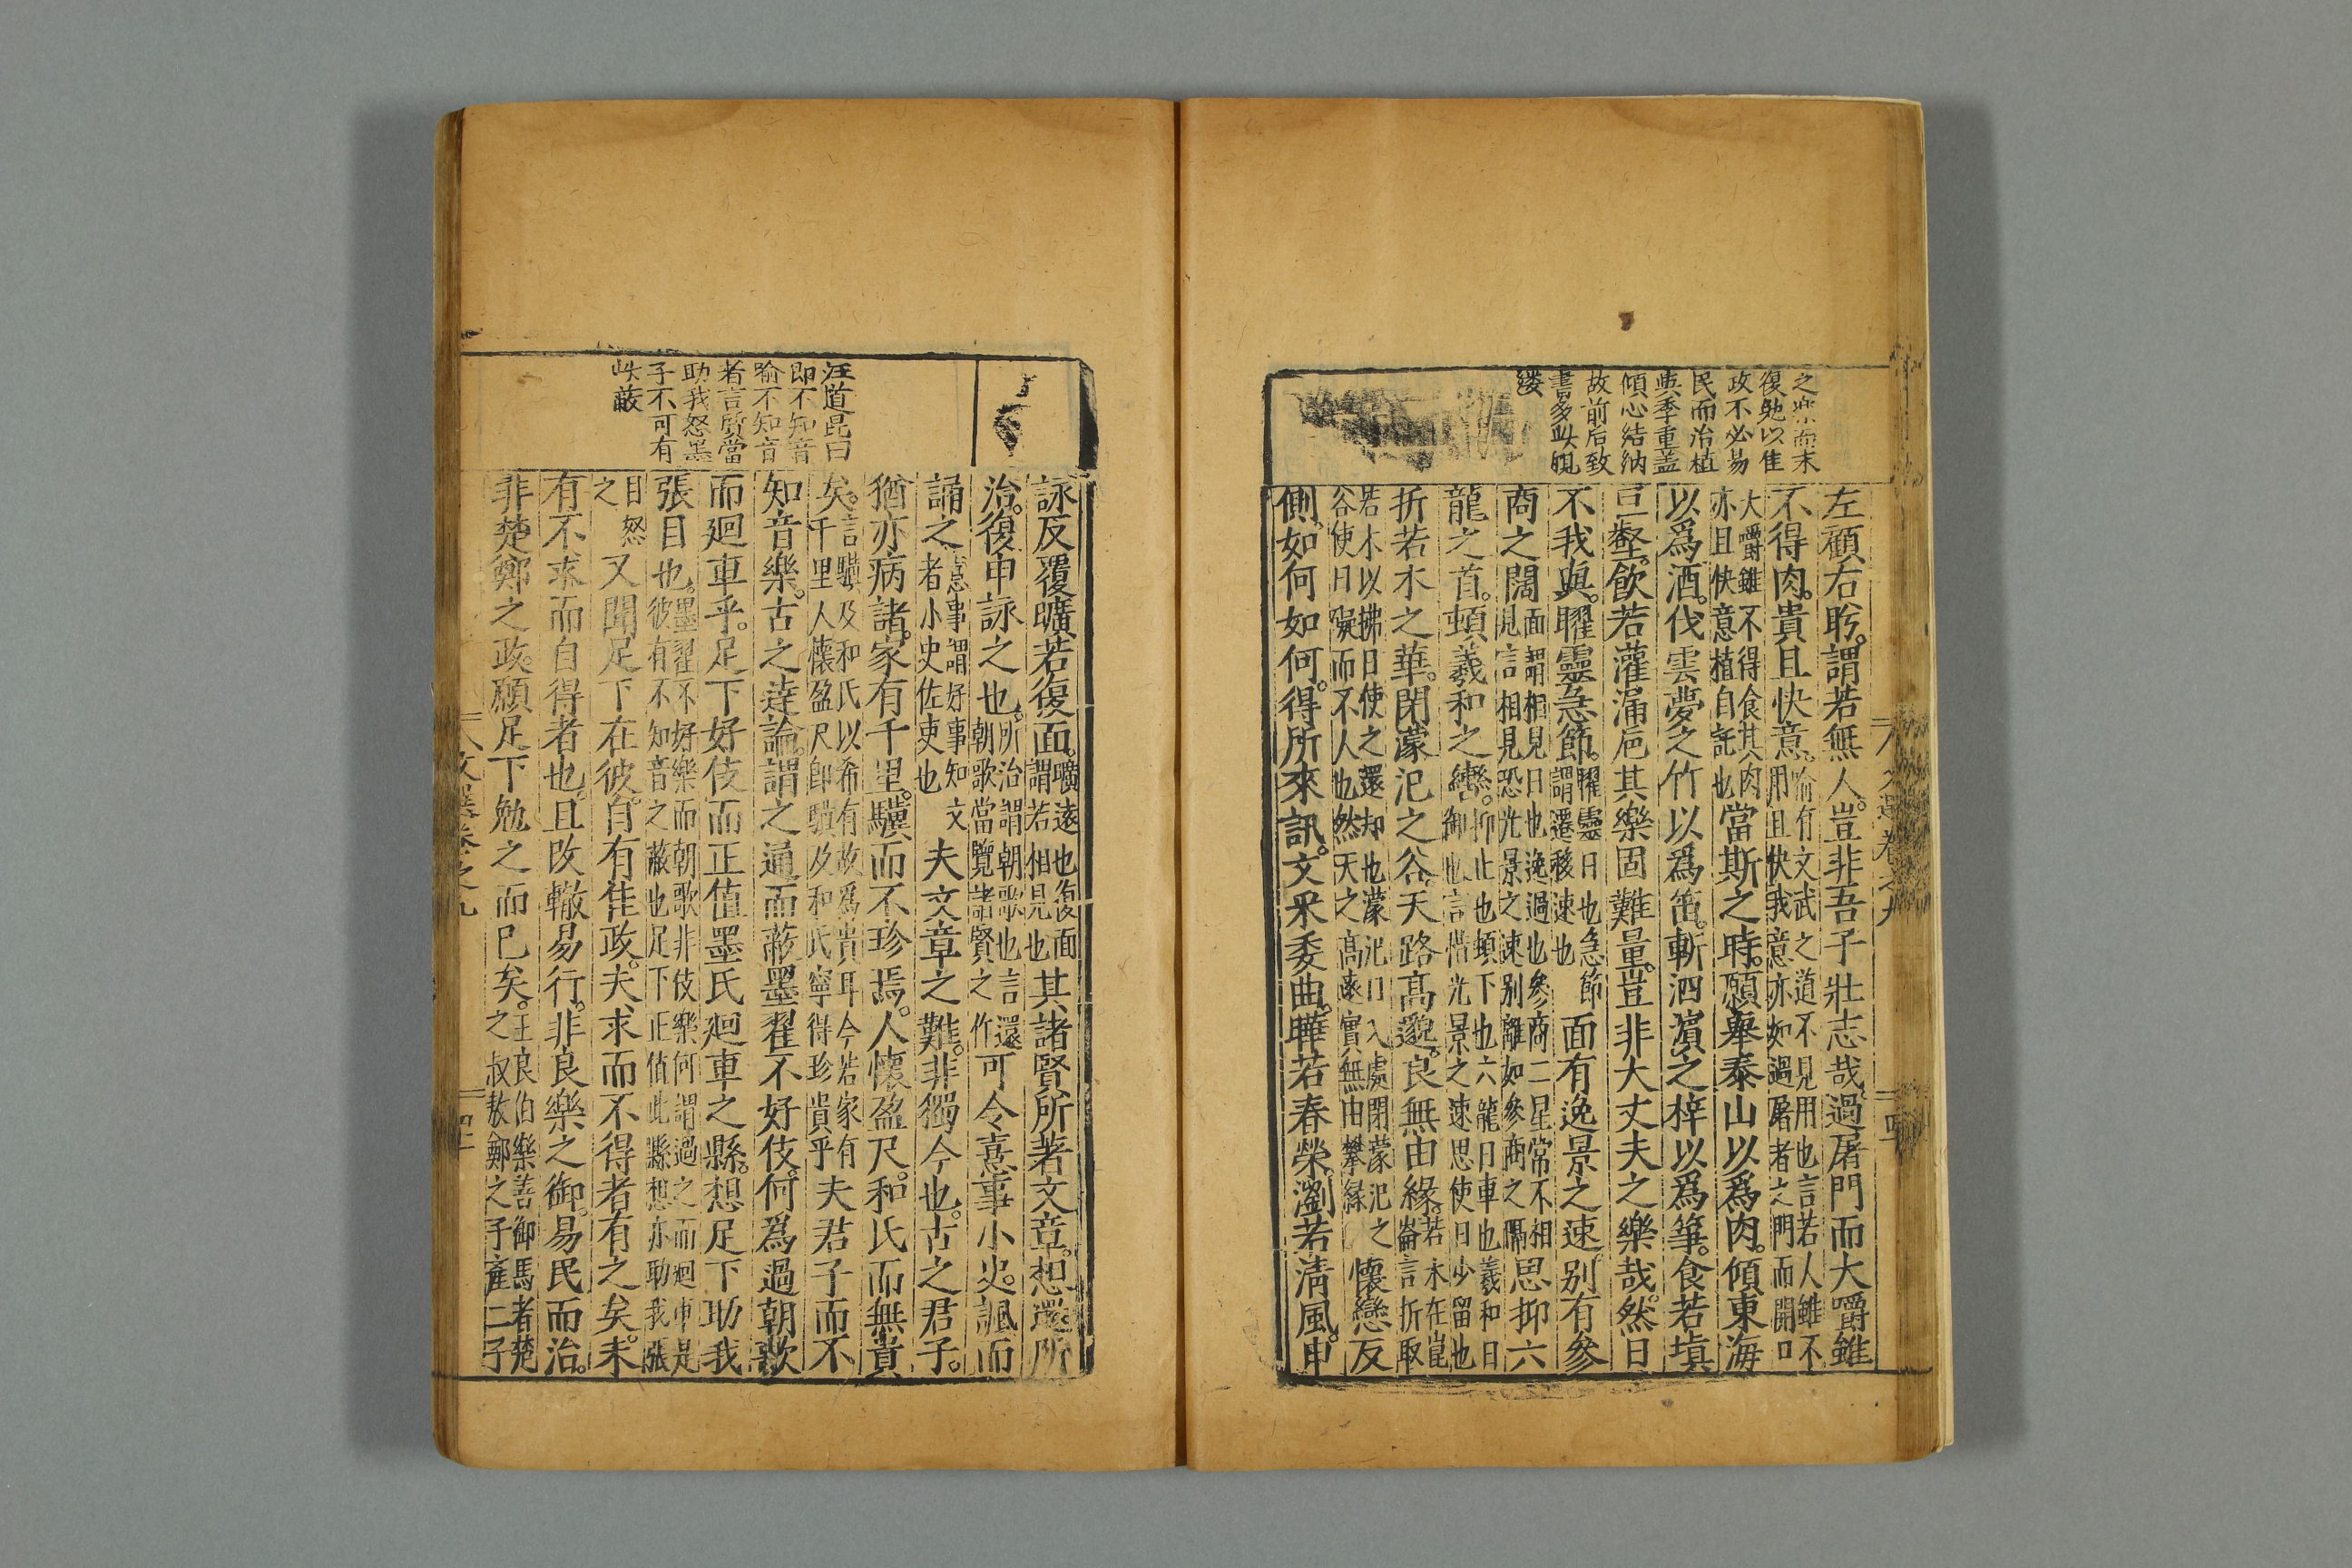 之樂而末
復勉以隹
政不必易
民而治植
與季重盖
傾心結納
故前后致
書多此覼
縷
左顧右盻。謂若無人。豈非吾子壯志哉。過屠門而大嚼雖
不得肉。貴且快意。喻有文武之道不見用也言若人雖不
用且快我意亦如過屠者之門而開口
大嚼雖不得食其肉
亦且快意植自託也當斯之時。願舉泰山以爲肉。傾東海
以爲酒。伐雲夢之竹以爲笛。斬泗濵之梓以爲筝。食若塡
巨壑。飲若灌漏巵其樂固難量。豈非大丈夫之樂哉。然日
不我與。曜靈急節。曜靈日也急節
謂遷移速也面有逸景之速别有參
商之闊面謂相見日也逸過也參商二星常不相
見言相見恐光景之速别離如參商之隔思抑六
龍之首。頓羲和之轡。抑止也頓下也六龍日車也羲和日
御也言惜光景之速思使日少留也
折若木之華。閉濛汜之谷。天路高邈。良無由緣。若木在崑
崙言折取
若木以拂日使之還却也濛汜日入處閉濛汜之
谷使日㬠而不人也然天之高遠實無由攀緣懷戀反
側。如何如何。得所來訊。文采委曲。曄若春榮。瀏若清風。申
汪道昆曰
即不知音
喻不知音
者言質當
助我怒墨
子不可有
此蔽
詠反覆曠若復面。曠遠也復面
謂若相見也其諸賢所著文章。想還所
治。復申詠之也。所治謂朝歌也言還
朝歌當覽諸賢之作可令憙事小史。諷而
誦之憙事謂好事知文
者小史佐吏也夫文章之難。非獨今也。古之君子。
猶亦病諸。家有千里。驥而不珍焉。人懷盈尺。和氏而無貴
矣。言驥及和氏以希有故爲貴耳今若家有
千里人懷盈尺卽驥及和氏寧得珍貴乎夫君子而不
知音樂。古之達論。謂之通而蔽墨翟不好伎。何爲過朝歌
而廻車乎。足下好伎而正值墨氏廻車之縣。想足下助我
張目也。墨翟不好樂而朝歌非伎樂何謂過之而廻車是
彼有不知音之蔽也足下正值此縣想亦助我張
目怒
之又聞足下在彼。自有隹政。夫求而不得者有之矣。未
有不求而自得者也。且改轍易行。非良樂之御。易民而治。
非楚鄭之政。願足下勉之而已矣。王良伯樂善御馬者楚
之叔敖鄭之子產二子
文選卷之九